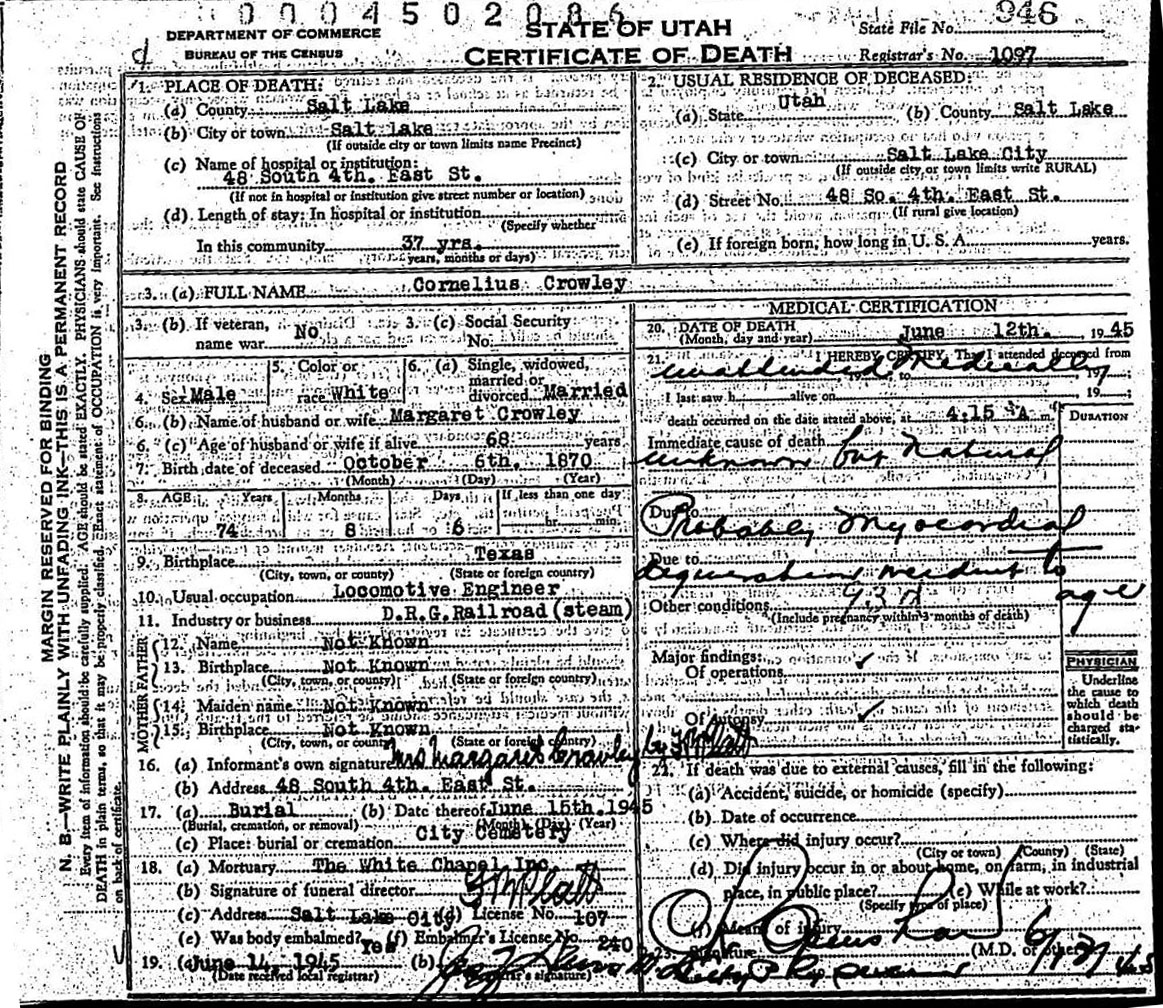 0004502086
DEPARTMENT OF COMMERCE
BUREAU OF THE CENSUS
STATE OF UTAH
CERTIFICATE OF DEATH
State File No. 946
Registrar's No. 1097
MARGIN RESERVED FOR BINDING
N. B.—WRITE PLAINLY WITH UNFADING INK—THIS IS A PERMANENT RECORD
Every item of information should be carefully supplied. AGE should be stated EXACTLY. PHYSICIANS should state CAUSE OF
DEATH in plain terms, so that it may be properly classified. Exact statement of OCCUPATION is very important. See instructions
on back of certificate.
1. PLACE OF DEATH:
(a) County Salt Lake
(b) City or town Salt Lake
(If outside city or town limits name Precinct)
(c) Name of hospital or institution:
48 South 4th. East St.
(If not in hospital or institution give street number or location)
(d) Length of stay: In hospital or institution
(Specify whether
In this community 37 yrs.
years, months or days)
2. USUAL RESIDENCE OF DECEASED:
(a) State Utah (b) County Salt Lake
(c) City or town Salt Lake City
(If outside city or town limits write RURAL)
(d) Street No. 48 So. 4th. East St.
(If rural give location)
(e) If foreign born, how long in U. S. A. years.
3. (a) FULL NAME Cornelius Crowley
3. (b) If veteran, name war No
3. (c) Social Security No.
4. Sex Male
5. Color or race White
6. (a) Single, widowed, married or divorced Married
6. (b) Name of husband or wife Margaret Crowley
6. (c) Age of husband or wife if alive 68 years
7. Birth date of deceased October 6th. 1870
(Month) (Day) (Year)
8. AGE Years Months Days If less than one day
74 8 6 hr. min.
9. Birthplace Texas
(City, town, or county) (State or foreign country)
10. Usual occupation Locomotive Engineer
11. Industry or business D.R.G. Railroad (steam)
FATHER
12. Name Not Known
13. Birthplace Not Known
(City, town, or county) (State or foreign country)
MOTHER
14. Maiden name Not Known
15. Birthplace Not Known
(City, town, or county) (State or foreign country)
16. (a) Informant's own signature Mrs Margaret Crowley by
(b) Address 48 South 4th. East St.
17. (a) Burial (b) Date thereof June 15th. 1945
(Burial, cremation, or removal) (Month) (Day) (Year)
(c) Place: burial or cremation City Cemetery
18. (a) Mortuary The White Chapel Inc.
(b) Signature of funeral director
(c) Address Salt Lake City (d) License No. 107
(e) Was body embalmed? Yes (f) Embalmer's License No. 240
19. (a) June 14, 1945 (b)
(Date received local registrar) (Registrar's signature)
MEDICAL CERTIFICATION
20. DATE OF DEATH
(Month, day and year) June 12th. , 1945
21. I HEREBY CERTIFY, That I attended deceased from
unattended Medically
19 to 19 ;
I last saw h alive on , 19 ;
death occurred on the date stated above, at 4:15 A m. DURATION
Immediate cause of death
unknown but Natural
Due to
Probably Myocardial
Due to
degeneration incident to age
Other conditions 93 d
(Include pregnancy within 3 months of death)
Major findings:
Of operations ✓
Of Autopsy ✓
PHYSICIAN
Underline
the cause to
which death
should be
charged sta-
tistically.
22. If death was due to external causes, fill in the following:
(a) Accident, suicide, or homicide (specify)
(b) Date of occurrence
(c) Where did injury occur?
(City or town) (County) (State)
(d) Did injury occur in or about home, on farm, in industrial
place, in public place? (e) While at work?
(Specify type of place)
(f) Means of injury
23. Signature (M.D. or other)